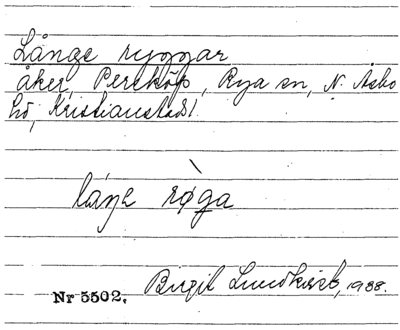 Långe ryggar
åker, Perstköp, Rya sn, N. Åsbo
hd, Kristianstads l.
láŋe rø̀ga
Birgit Lundkvist, 1988.
Nr 5502.